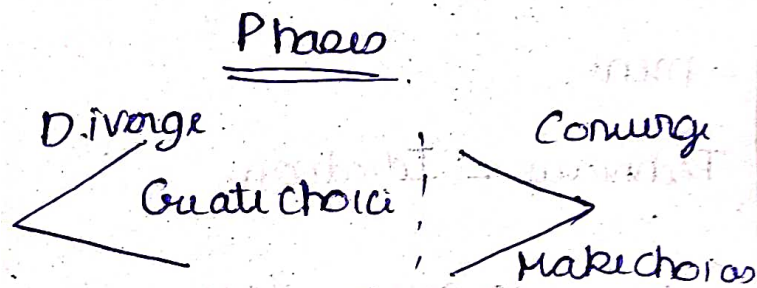 Phases
Diverge Converge
Create choice
Make choices